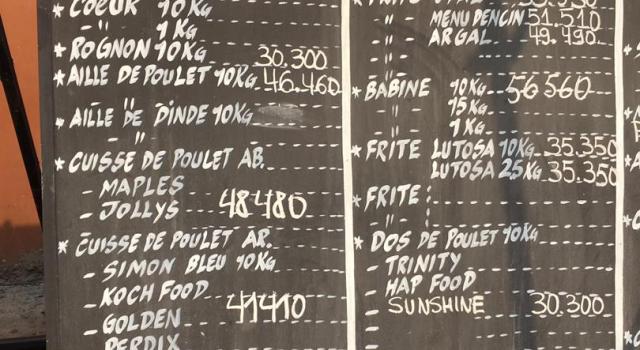 * COEUR 10Kg
- " - 1Kg
* ROGNON 10Kg 30.300
* AILLE DE POULET 10Kg 46.460
* AILLE DE DINDE 10Kg
- " -
* CUISSE DE POULET AB.
- MAPLES
- JOLLYS 48480
* CUISSE DE POULET AR.
- SIMON BLEU 10Kg
- KOCH FOOD
- GOLDEN 41410
- PERDIX
- " - MENUDENCIN 51.510
- " - ARGAL 49.490
- " -
* BABINE 10Kg 56560
- " - 15Kg
- " - 1Kg
* FRITE LUTOSA 10Kg 35.350
LUTOSA 25Kg 35.350
* FRITE :
- " -
* DOS DE POULET 10Kg
- TRINITY
- HAP FOOD
- SUNSHINE 30.300